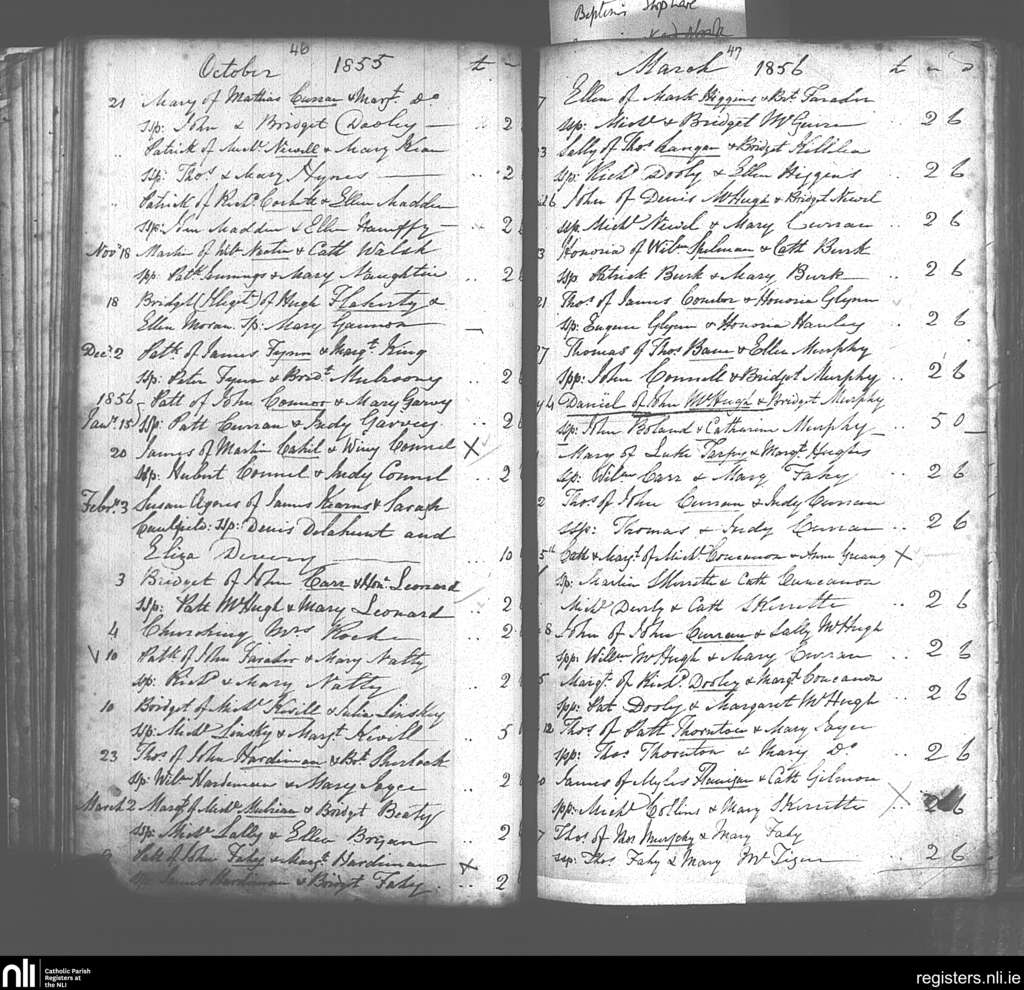 Baptisms
46
October 1855 £ —
21 Mary of Mathias Curran & Margt. Do
sp: John & Bridget Dooley — 2
" Patrick of Michl. Newell & Mary Kean
sp: Thos. & Mary Hynes — 2
" Patrick of Richd. & Ellen Madden
sp: John Madden & Ellen — 2
Novr. 18 Martin of & Cath Walsh
sp: Patk. Jennings & Mary Naughtin 2
18 Bridget (Illegt.) of Hugh Flaherty &
Ellen Moran. sp: Mary Gannon —
Decr. 2 Patk. of James Fynn & Margt. King
sp: Peter Fynn & Bridt. Mulrooney 2
1856 Patt of John Connor & Mary Garvey
Janr. 15 sp: Patt Curran & Judy Garvey 2
20 James of Martin Cahil & Winy Connel X
sp: Hubert Connel & Judy Connel 2
Febr. 3 Susan Agnes of James Kearns & Sarah
Caulfield: sp: Denis Delahunt and
Eliza — 10
3 Bridget of John Carr & Hon. Leonard
sp: Patt McHugh & Mary Leonard 2
4 Churching Mrs Roche 2
V 10 Patk. of John Farador & Mary Natty
sp: Richd. & Mary Natty 2
10 Bridget of Michl. Kevill & Julia Linskey
sp: Michl. Linsky & Margt. Kevill 5
23 Thos. of John Hardiman & Bt. Sherlock
sp: Willm. Hardiman & Mary Joyce 2
March 2 Margt. of Michl. & Bridget Beaty
sp: Michl. Lally & Ellen Bryan 2
Patt of John Fahy & Margt. Hardiman X
sp: James Hardiman & Bridget Fahy 2
47
March 1856 £ — D
7 Ellen of Mark Higgins & Bt. Farador
sp: Michl. & Bridget McGuire 2 6
23 Sally of Thos. & Bridget Killilea
sp: Richd. Dooly & Ellen Higgins 2 6
26 John of Denis McHugh & Bridget Newel
sp: Michl. Newel & Mary Curran 2 6
3 Honoria of Willm. Spelman & Cath Burk
sp Patrick Burk & Mary Burk 2 6
21 Thos. of James Connor & Honoria Glynn
sp: Eugene Glynn & Honoria Hanley 2 6
27 Thomas of Thos. Bane & Ellen Murphy
spp: John Connell & Bridget Murphy 2 6
4 Daniel of John McHugh & Bridget Murphy
sp: John Roland & Catherine Murphy — 5 0
Mary of Luke Tarpy & Margt. Hughes
sp: Willm. Carr & Mary Fahy 2 6
2 Thos. of John Curran & Judy Curran
ssp: Thomas & Judy Curran 2 6
5th Cath & Margt. of Michl. Concannon & Anne X
sp: Martin Skerrett & Cath Concanon
Michl. & Cath Skerrette 2 6
8 John of John Curran & Sally McHugh
spp: Willm. McHugh & Mary Curran 2 6
5 Margt. of Richd. Dooley & Margt. Concanon
spp: Pat Dooly & Margaret McHugh 2 6
12 Thos of Patt Thornton & Mary Joyce
spp: Thos. Thornton & Mary Do 2 6
20 James of Myles Flanigan & Cath Gilmor
spp: Michl. Collins & Mary Skerrette X 2 6
7 Thos. of Thos Murphy & Mary Fahy
ssp: Thos. Fahy & Mary 2 6
nli
Catholic Parish
Registers at
the NLI
registers.nli.ie